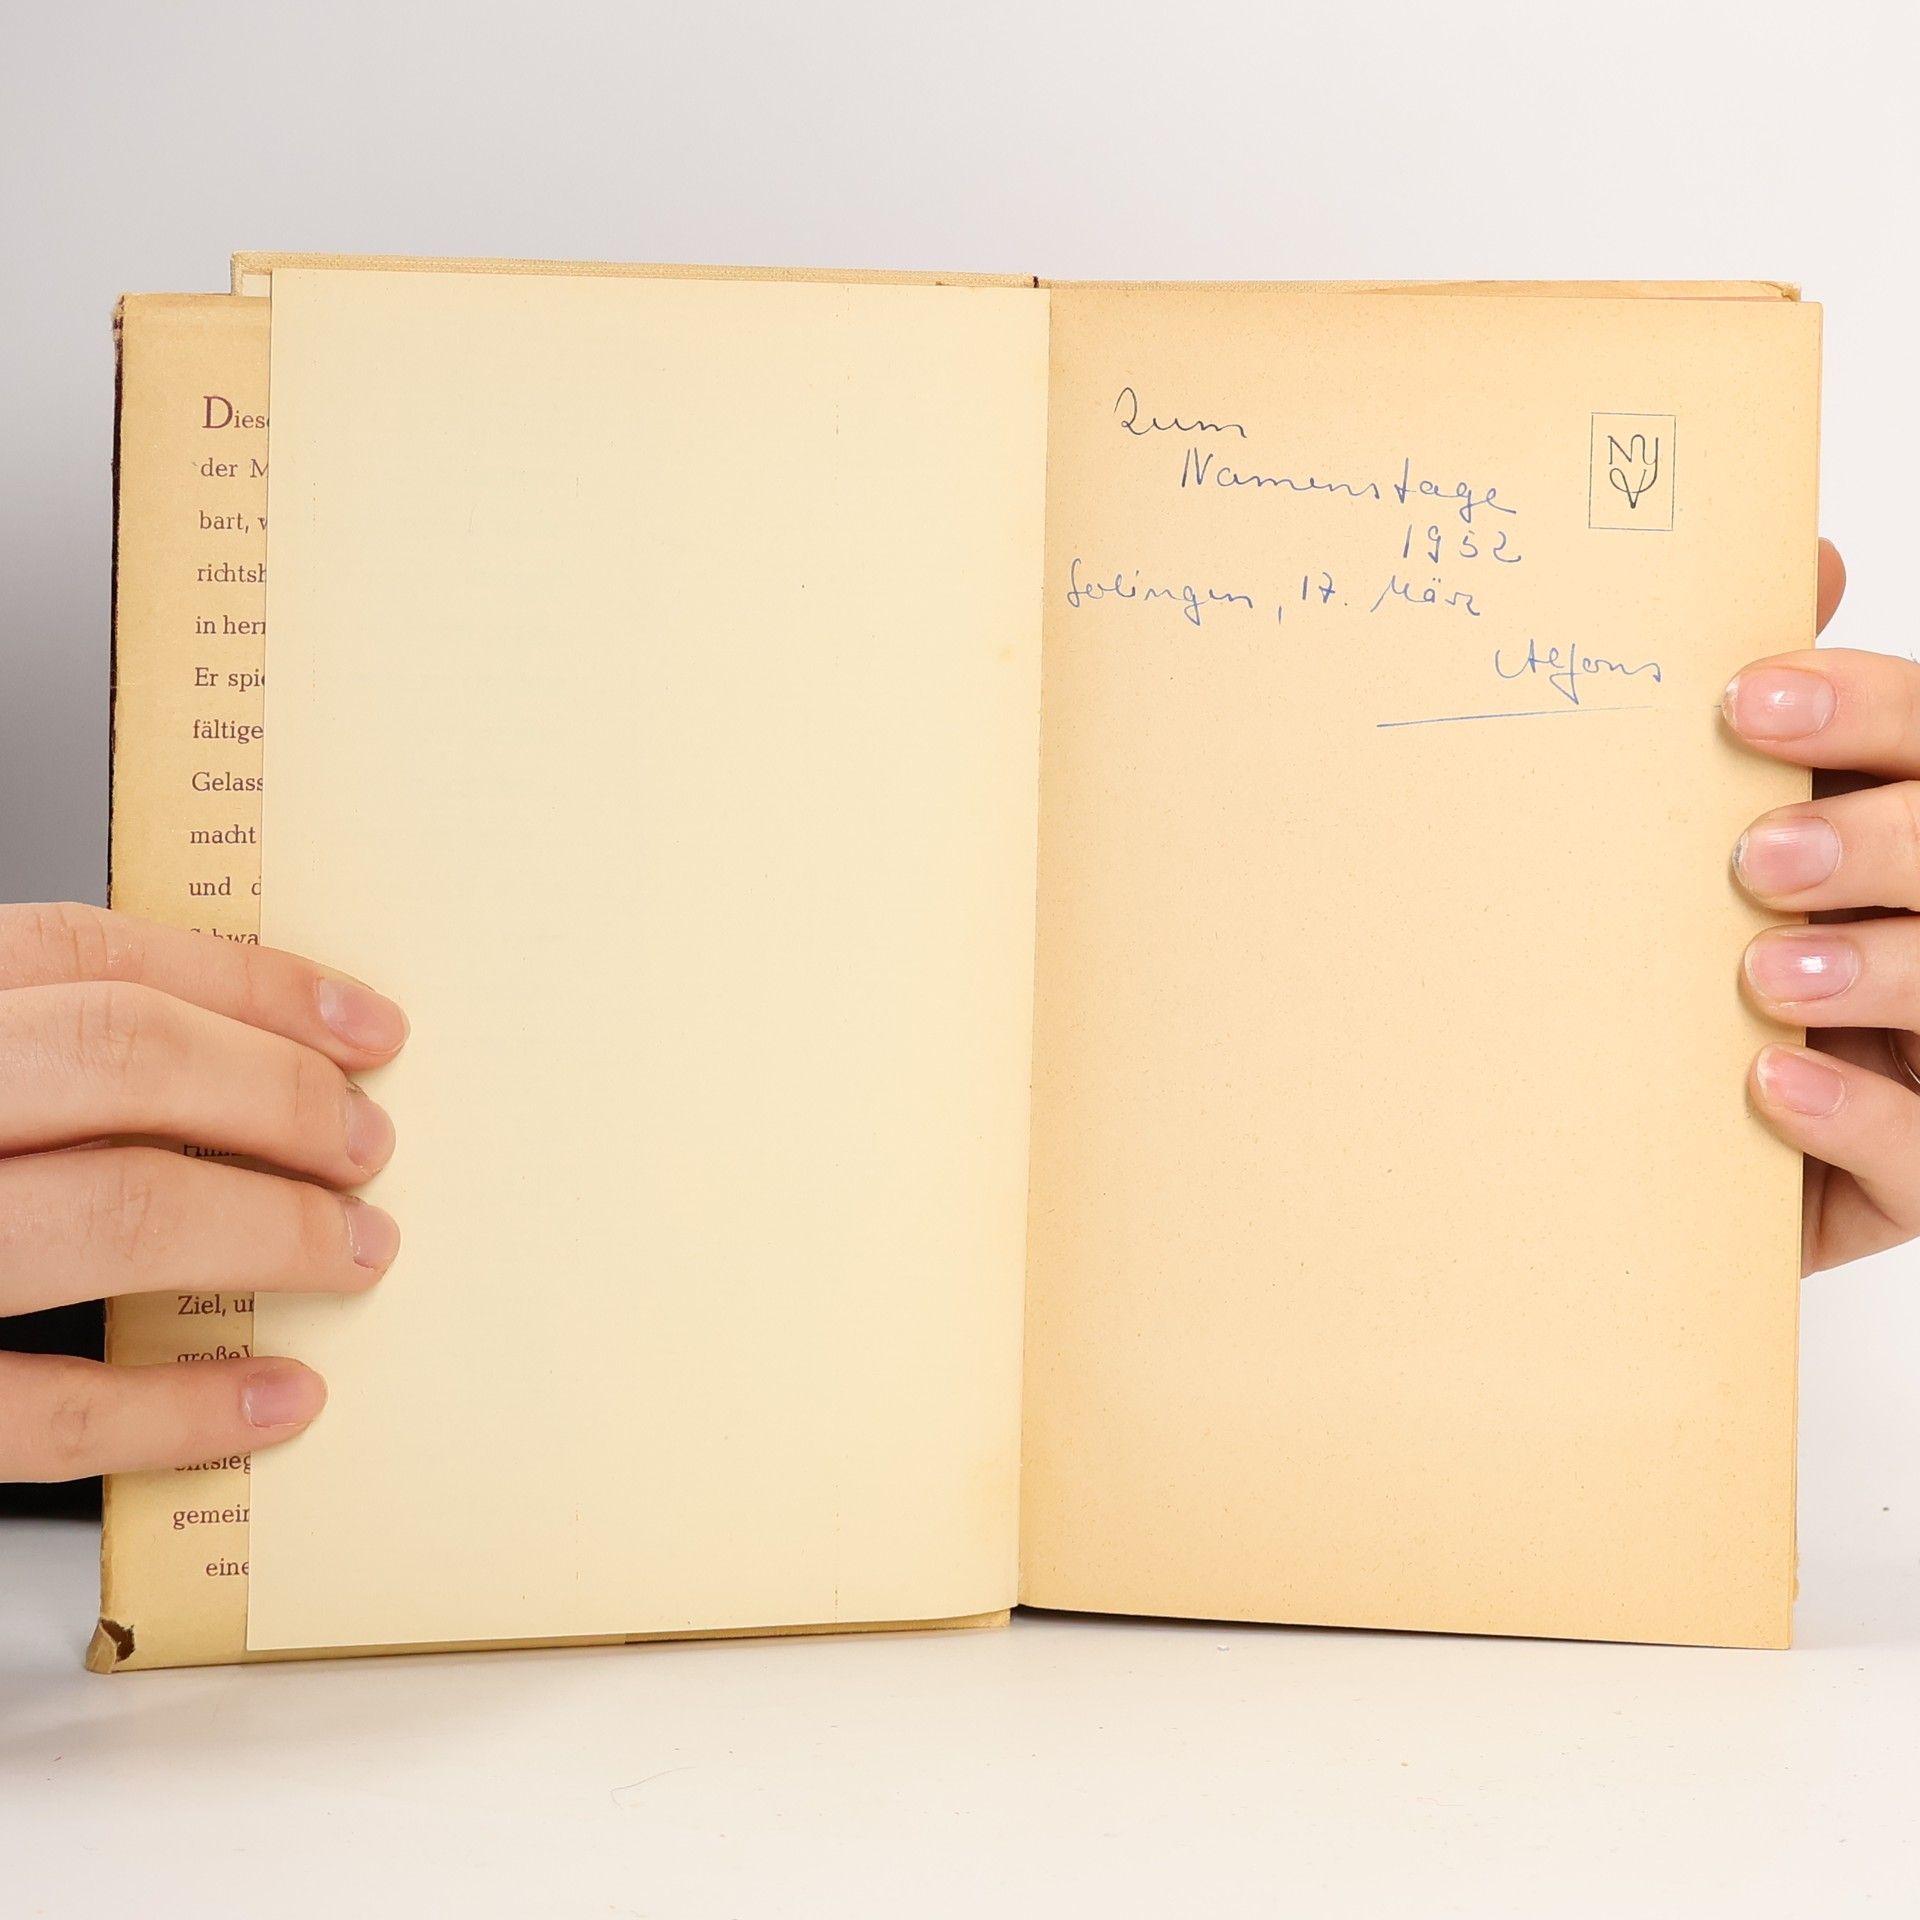 Diese
der M
bart, v
richtsh
in herr
Er spie
fältige
Gelass
macht
und d
Schwa
Ziel, un
große
entsieg
gemein
eine
Zum
Namenstage
1952
Solingen, 17. März
Alfons
NYV